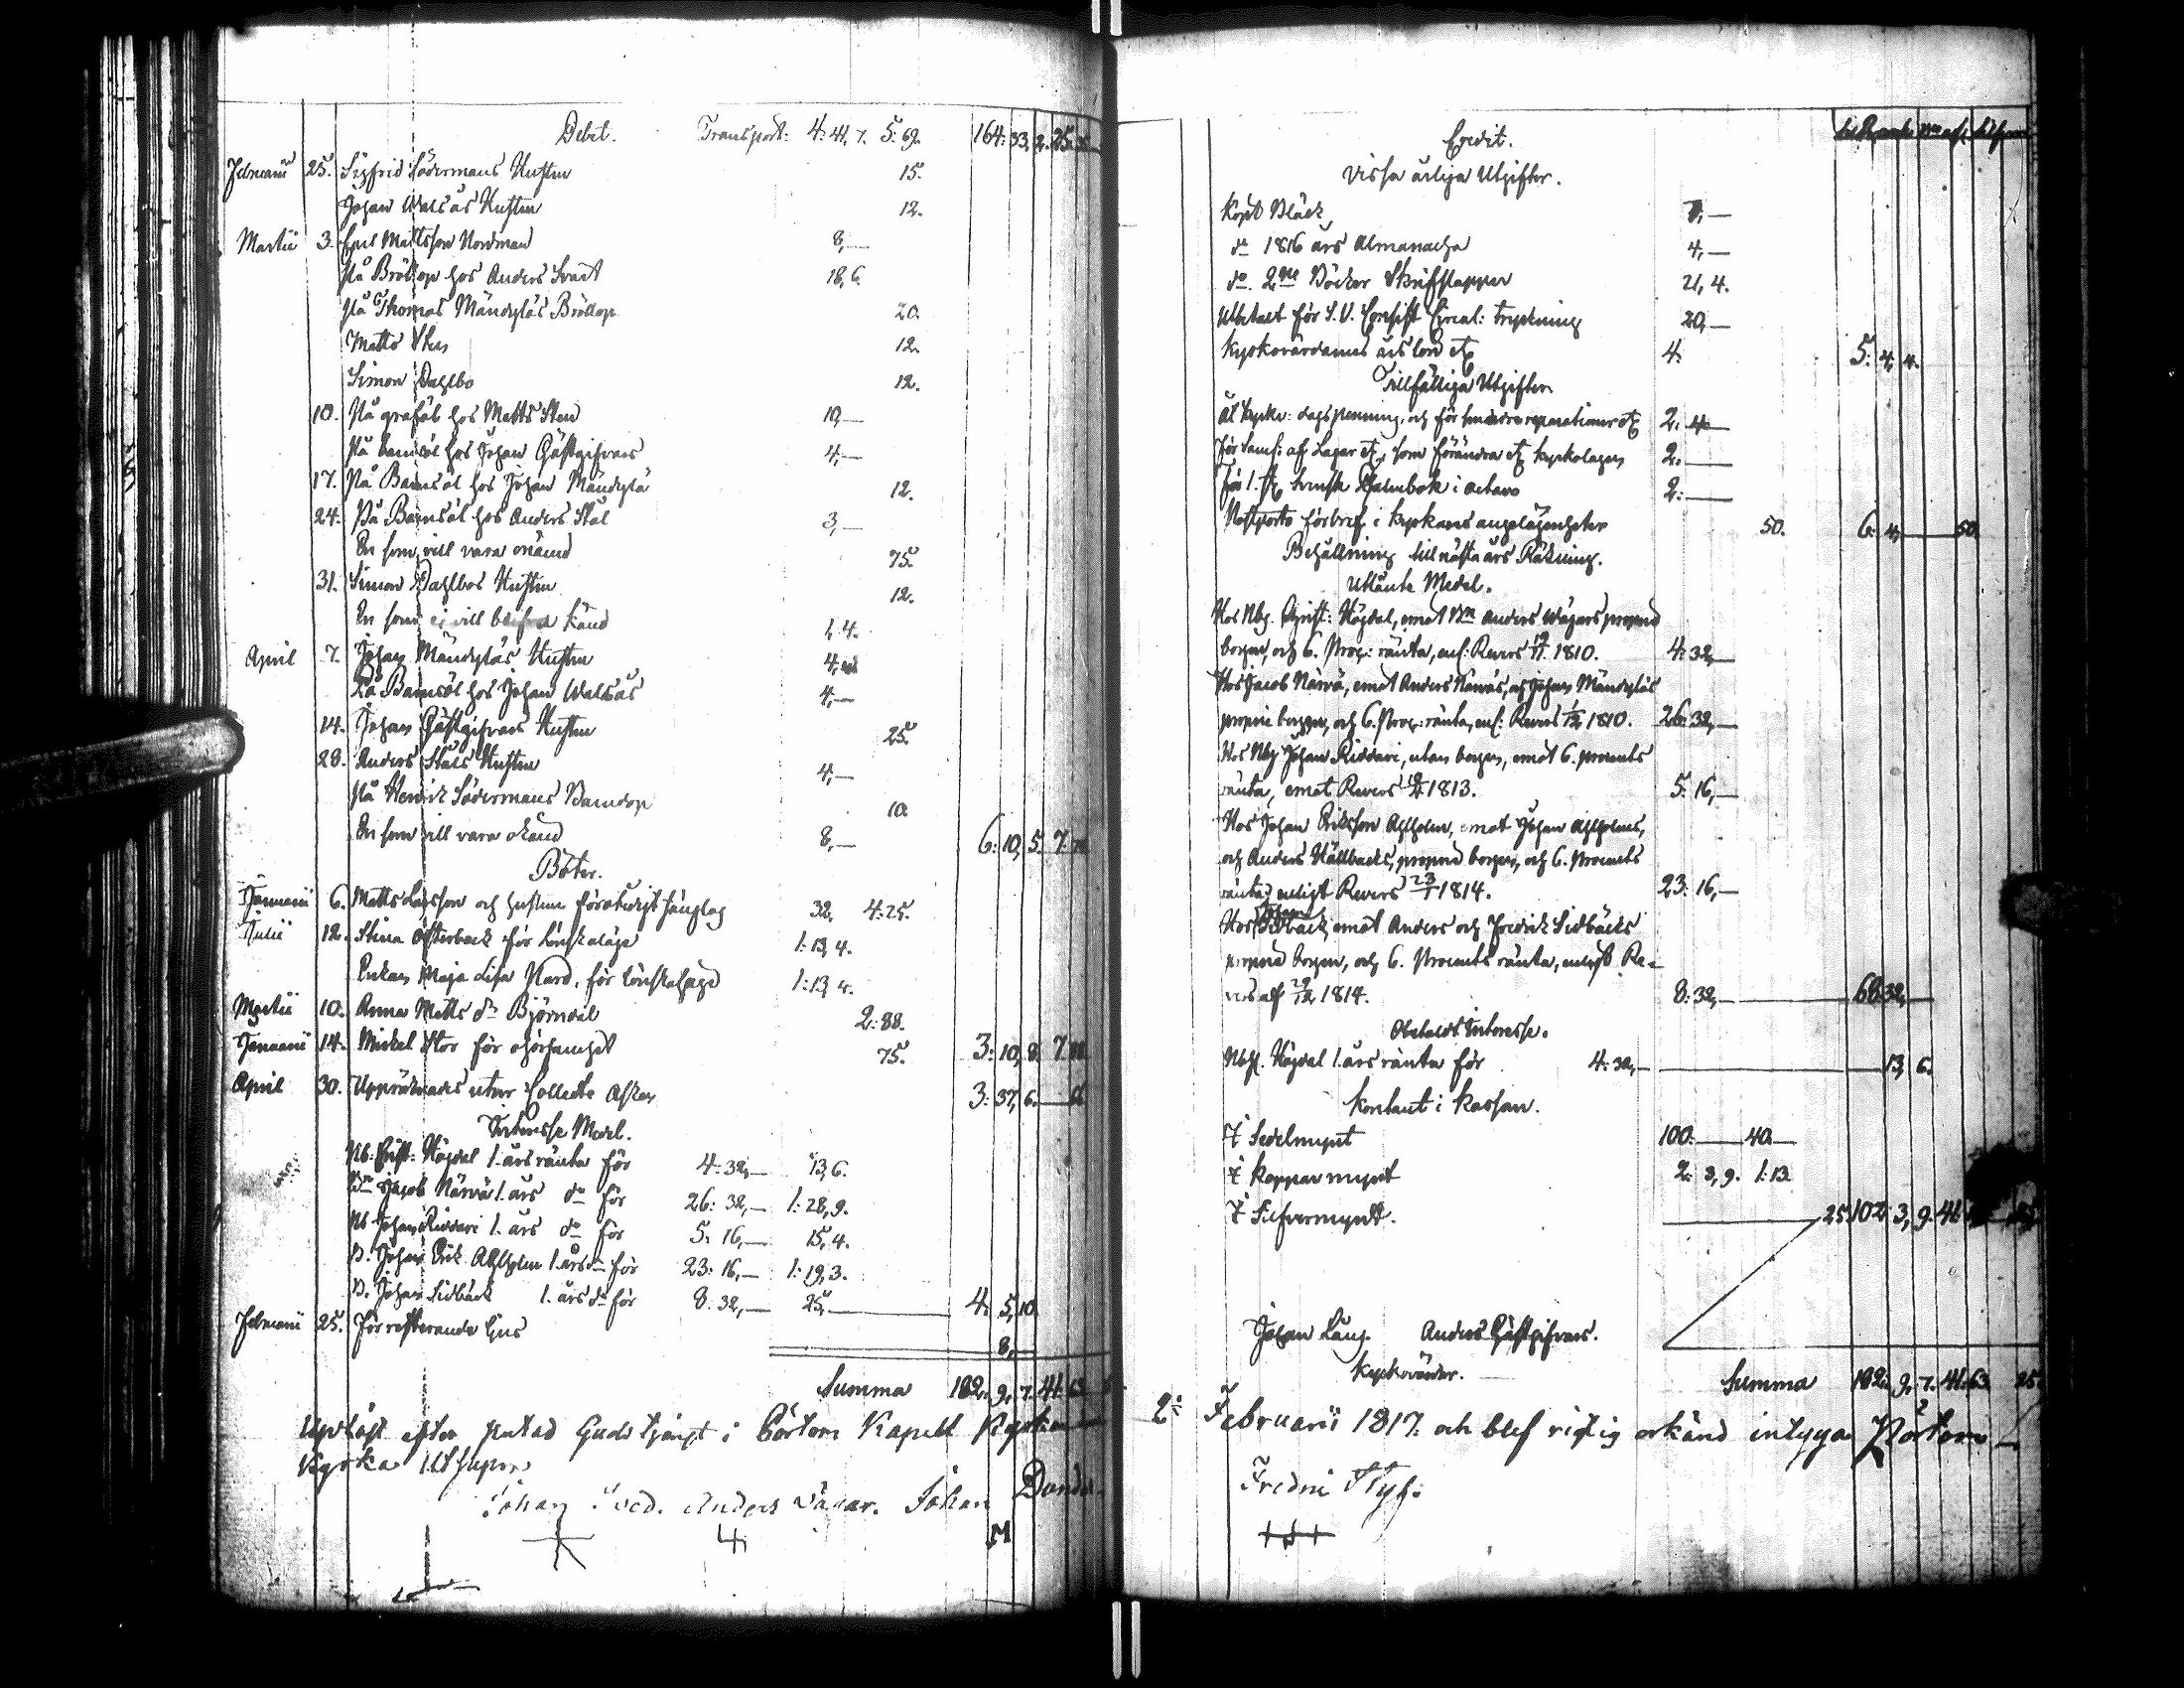 Debet. Transport: 4: 41, 7. 5: 69. 164: 33, 2. 25.
Februarii 25. Sigfrid Södermans Hustru 15.
Johan Walsås Hustru 12.
Martii 3. Eric Mattsson Nordman 8,—
På Bröllop hos Anders Svart 18, 6.
På Thomas Mändyläs Bröllop 20.
Matts 12.
Simon Dahlbo 12.
10. På grafåb hos Matts Sten 10,—
På barnsöl hos Johan Gästgifvars 4,—
17. På Barnsöl hos Johan Mändylä 12.
24. På Barnsöl hos Anders Stål 3,—
En som vill vara onämd 75.
31. Simon Dahlbos Hustru 12.
En som ej vill blifva känd 1, 4.
April 7. Johan Mändyläs Hustru 4,
På Barnsöl hos Johan Walsås 4,—
14. Johan Gästgifvars Hustru 25.
28. Anders Ståls Hustru 4,—
På Henrik Södermans Barndop 10.
En som vill vara okänd 8,— 6: 10, 5. 7.
Böter.
Januarii 6. Matts Larsson och hustru för otidigt sänglag 32, 4: 25.
Julii 12. Stina Österback för Lönskaläge 1: 13, 4.
Enkan Maja Lisa Nord. för Lönskaläge 1: 13, 4.
Martii 10. Anna Matts dr Björndal 2: 88.
Januarii 14. Mickel Stor för ohörsamhet 75. 3: 10, 8. 7.
April 30. Uppräknades utur Collecte Asken 3: 37, 6.
Interesse Medel.
Nb. Christ: Högdal 1. års ränta för 4: 32,— 13, 6.
Bn Jacob Närvä 1. års do för 26: 32,— 1: 28, 9.
Nb Johan Riddari 1. års do för 5: 16,— 15, 4.
B. Johan Erik Ahlholm 1. års do för 23: 16,— 1: 19, 3.
B. Johan Sidbäck 1. års do för 8: 32,— 25,— 4: 5, 10.
Februarii 25. För resterande Ljus 8,
Summa 182: 9, 7. 41: 63
Upläst efter slutad Gudstjenst i Pörtom Kapell Kyrka
Kyrka
Johan Sved. Anders Vägar. Johan
4 M
Credit.
Vissa årliga Utgifter.
Köpt Bläck 7,—
do 1816 års Almanacha 4,—
do 2ne Böcker Skrifpapper 21, 4.
Utbetalt för S. V. Consist Circul: tryckning 20,—
Kyrkovärdarnes årslön 4: 5: 4, 4.
Tillfälliga Utgifter.
2: 4
2:—
För 1. st. Svensk Psalmbok i octavo 2:—
Postporto för bref i kyrkans angelägenheter 50. 6: 4, 50.
Behållning till nästa års Räkning.
Utlånte Medel.
Hos Nbg. Christ: Högdal, emot Bn Anders Wägars proprie
borgen, och 6. Proc: ränta, enl: Revers 1810. 4: 32,—
Hos Jacob Närvä, emot Anders Närväs, och Johan Mändyläs
proprie borgen, och 6. Proc: ränta, enl: Revers 1/12 1810. 26: 32,—
Hos Nbg Johan Riddari, utan borgen, emot 6. procents
ränta, emot Revers 1813. 5: 16,—
Hos Johan Eriksson Ahlholm, emot Johan Ahlholms,
och Anders Hällbacks, proprie borgen, och 6. Procents
ränta, enligt Revers 23/1 1814. 23: 16,—
Hos Johan Sidbäck, emot Anders och Fredrik Sidbäcks
proprie borgen, och 6. Procents ränta, enligt Re-
vers af 29/12 1814. 8: 32,— 68: 32,
Obetaldt Interesse.
Nbg. Högdal 1. års ränta för 4: 32,— 13, 6.
Kontant i Kassan.
I Sedelmynt 100:— 40—
I Kopparmynt 2: 3, 9. 1: 13
I Silfvermynt. 25 102: 3, 9. 41
Johan Lång. Anders Gästgifvars.
Kyrkovärdar.
Summa 182: 9, 7. 41: 63. 25.
2: Februarii 1817. och blef riktig erkänd intygar Pörtom
Fredric